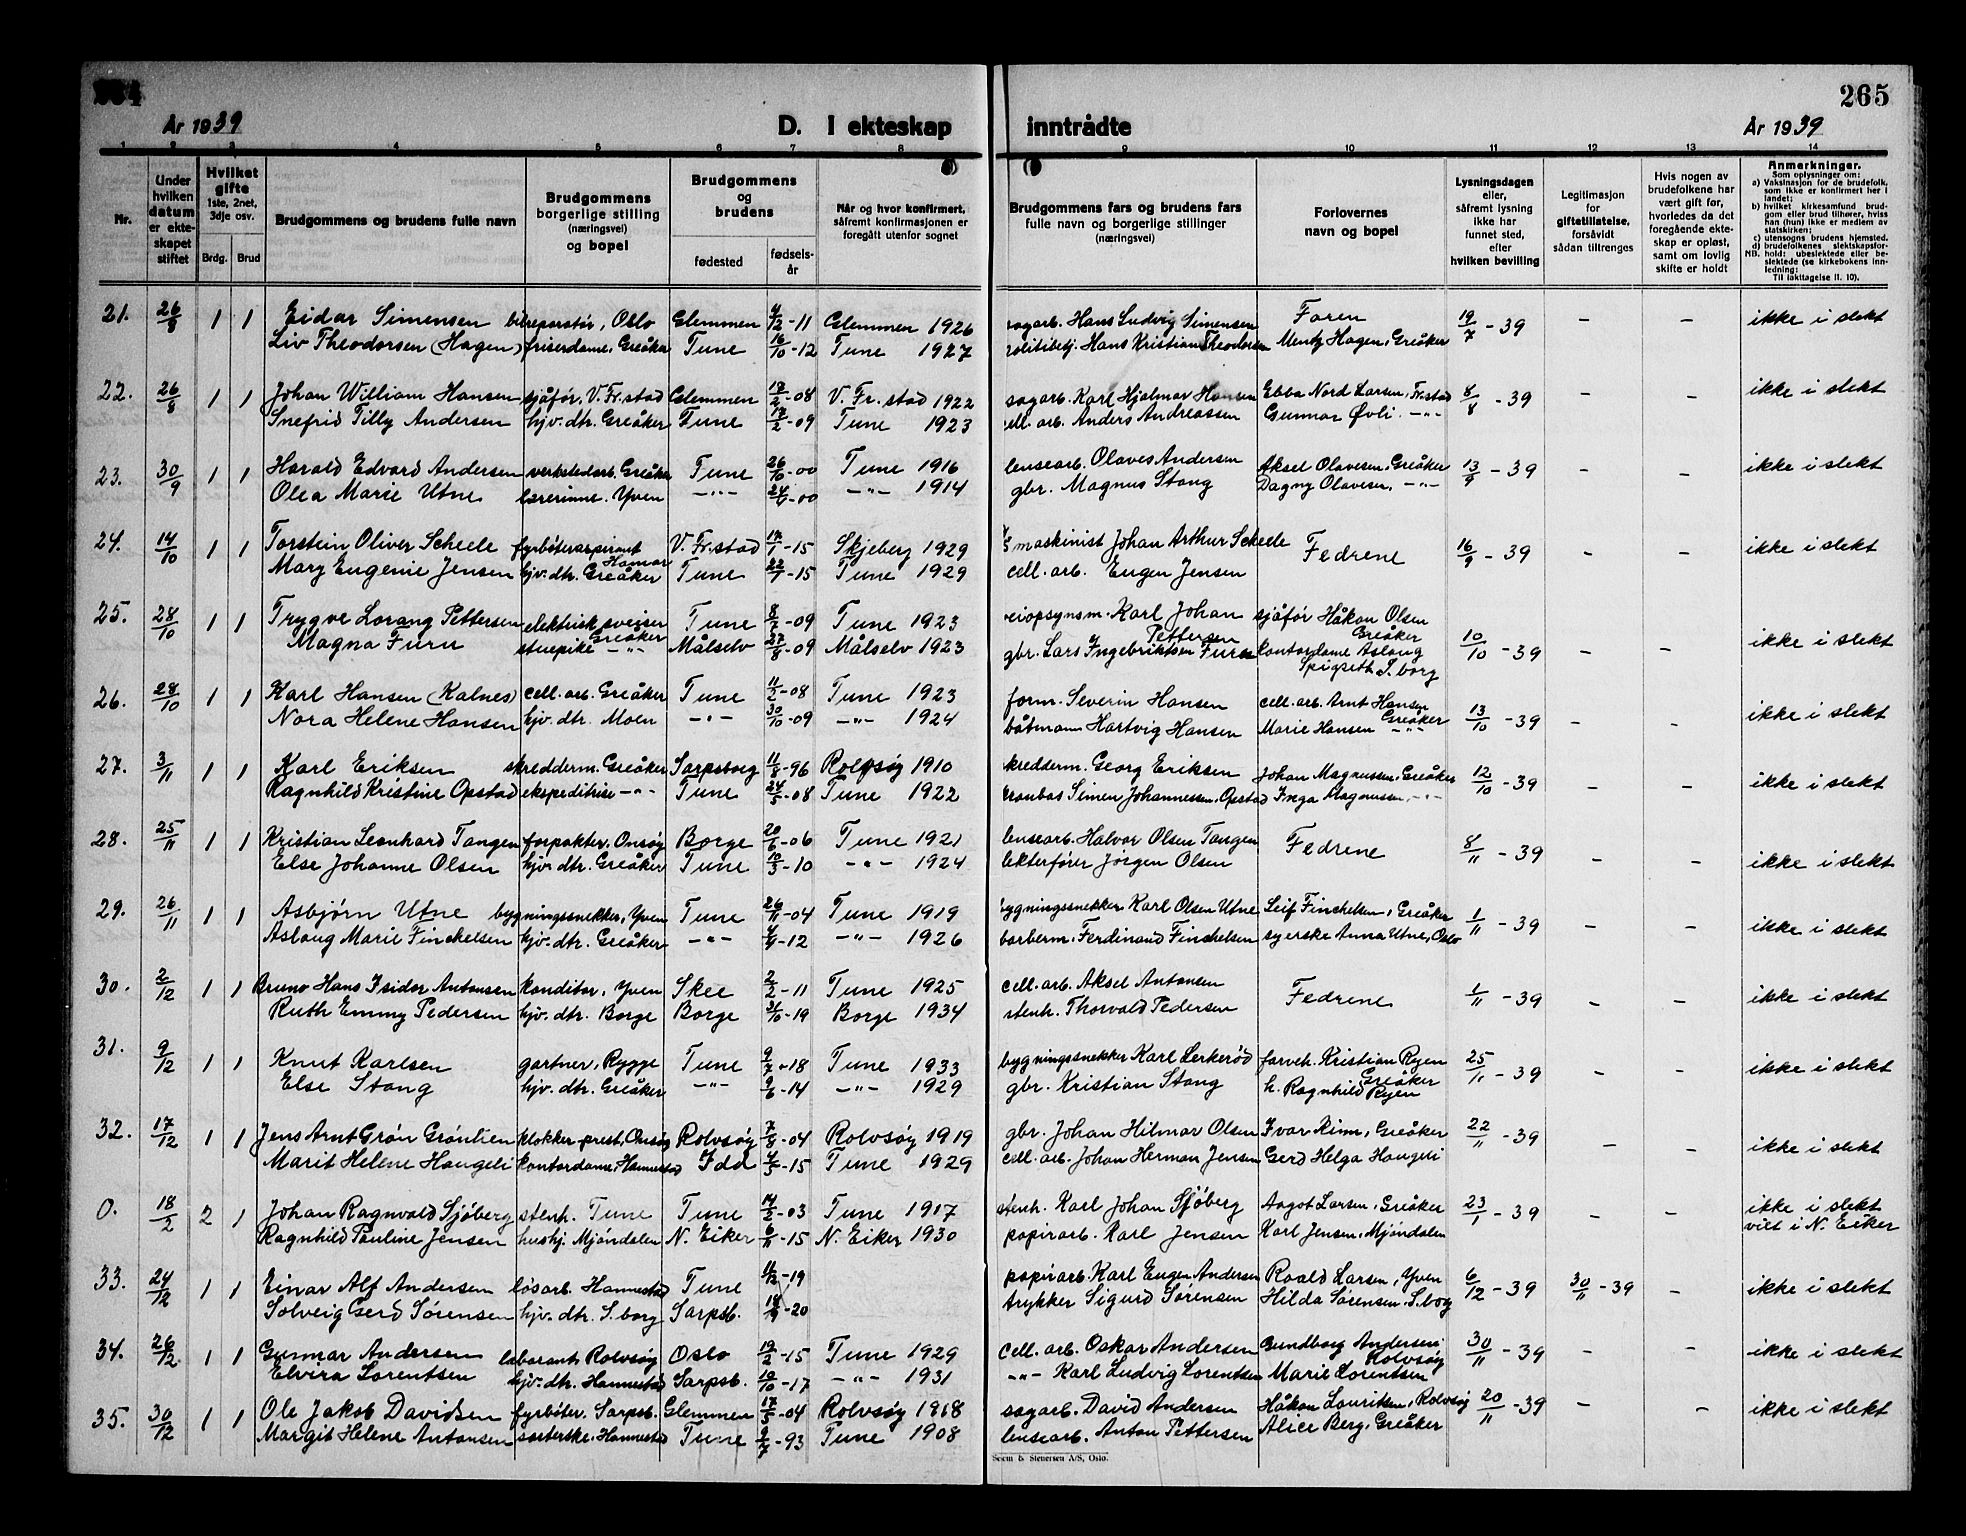 265
År 1939 D. I ekteskap inntrådte År 1939
1 2 3 4 5 6 7 8 9 10 11 12 13 14
Nr.
Under hvilken datum er ekteskapet stiftet
Hvilket gifte 1ste, 2net, 3dje osv.
Brdg. Brud
Brudgommens og brudens fulle navn
Brudgommens borgerlige stilling (næringsvei) og bopel
Brudgommens og brudens
fødested
fødselsår
Når og hvor konfirmert, såfremt konfirmasjonen er foregått utenfor sognet
Brudgommens fars og brudens fars fulle navn og borgerlige stillinger (næringsvei)
Forlovernes navn og bopel
Lysningsdagen eller, såfremt lysning ikke har funnet sted, efter hvilken bevilling
Legitimasjon for giftetillatelse, forsåvidt sådan tiltrenges
Hvis nogen av brudefolkene har vært gift før, hvorledes da det foregående ekteskap er opløst, samt om lovlig skifte er holdt
Anmerkninger.
Som oplysninger om:
a) Vaksinasjon for de brudefolk, som ikke er konfirmert her i landet;
b) hvilket kirkesamfund brudgom eller brud tilhører, hviss han (hun) ikke er medlem av statskirken;
c) utensogns brudens hjemsted.
d) brudefolkenes slektskapsforhold: ubeslektede eller beslektede (se kirkebokens innledning;
NB.
Til iakttagelse II. 10).
21. 26/8 1 1 Eidar Simensen bilreparatør, Oslo Glemmen 4/12-11 Glemmen 1926 sagarb. Hans Ludvig Simensen Faren 19/7-39 - - ikke i slekt
Liv Theodorsen (Hagen) friserdame, Greåker Tune 16/10-12 Tune 1927 politibetj. Hans Kristian Theodorsen Mentz Hagen, Greåker
22. 26/8 1 1 Johan William Hansen sjåfør, V. Fr.stad Glemmen 17/2-08 V. Fr.stad 1922 sagarb. Karl Hjalmar Hansen Ebba Nord Larsen, Fr.stad 8/8-39 - - ikke i slekt
Snefrid Tilly Andersen hjv. dtr. Greåker Tune 17/2-09 Tune 1923 cell. arb. Anders Andreassen Gunnar Øvli. -"-
23. 30/9 1 1 Harald Edvard Andersen verkstedarb. Greåker Tune 26/10-00 Tune 1916 lensearb. Olaves Andersen Aksel Olavesen, Greåker 13/9-39 - - ikke i slekt
Olea Marie Utne lærerinne, Yven -"- -00 -"- 1914 gbr. Magnus Stang Dagny Olavesen, -"-
24. 14/10 1 1 Torstein Oliver Scheele fyrbøteraspirant Hamar V. Fr.stad 17/1-15 Skjeberg 1929 maskinist Johan Arthur Scheele Fedrene 16/9-39 - - ikke i slekt
Mary Eugenie Jensen hjv. dtr. Greåker Tune 22/1-15 Tune 1929 cell. arb. Eugen Jensen
25. 28/10 1 1 Trygve Lorang Pettersen elektrisk sveiser Greåker Tune 8/7-09 Tune 1923 veiopsynsm. Karl Johan Pettersen sjåfør Håkon Olsen Greåker 10/10-39 - - ikke i slekt
Magna Furu stuepike -"- Målselv 27/8-09 Målselv 1923 gbr. Lars Ingebriktsen Furu kontordame Aslaug Spigseth S.borg
26. 28/10 1 1 Karl Hansen (Kalnes) cell. arb. Greåker Tune 11/2-08 Tune 1923 form. Severin Hansen cell. arb. Arnt Hansen Greåker 13/10-39 - - ikke i slekt
Nora Helene Hansen hjv. dtr. Moen -"- 30/10-09 -"- 1924 båtmann Hartvig Hansen Marie Hansen -"-
27. 3/11 1 1 Karl Eriksen skredderm. Greåker Sarpsborg 11/8-96 Rolvsøy 1910 skredderm. Georg Eriksen Johan Magnussen, Greåker 12/10-39 - - ikke i slekt
Ragnhild Kristine Opstad ekspeditrise -"- Tune 24/5-08 Tune 1922 Simen Johannessen, Opstad Inga Magnussen, -"-
28. 25/11 1 1 Kristian Leonhard Tangen forpakter, Onsøy Borge 20/6-06 Tune 1921 lensearb. Halvor Olsen Tangen Fedrene 8/11-39 - - ikke i slekt
Else Johanne Olsen hjv. dtr. Greåker Tune 10/3-10 -"- 1924 lekterfører Jørgen Olsen
29. 26/11 1 1 Asbjørn Utne bygningssnekker, Yven Tune 26/11-04 Tune 1919 bygningssnekker Karl Olsen Utne Leif Finckelsen, Greåker 1/11-39 - - ikke i slekt
Aslaug Marie Finckelsen hjv. dtr. Greåker -"- -12 -"- 1926 barberm. Ferdinand Finckelsen syerske Anna Utne, Oslo
30. 2/12 1 1 Bruno Hans Isidor Antonsen konditor, Yven Skee 2/2-11 Tune 1925 cell. arb. Aksel Antonsen Fedrene 1/11-39 - - ikke i slekt
Ruth Emmy Pedersen hjv. dtr. Borge Borge -19 Borge 1934 stenh. Thorvald Pedersen
31. 9/12 1 1 Knut Karlsen gartner, Rygge Tune 9/7-18 Tune 1933 bygningssnekker Karl Lerkerød farveh. Kristian Ryen Greåker 25/11-39 - - ikke i slekt
Else Stang hjv. dtr. Greåker -"- 9/6-14 -"- 1929 gbr. Kristian Stang h. Ragnhild Ryen
32. 17/12 1 1 Jens Arnt Grøn Grønlien klokker-prest, Onsøy Rolvsøy 7/8-04 Rolvsøy 1919 gbr. Johan Hilmar Olsen Ivar Rim, Greåker 22/11-39 - - ikke i slekt
Marit Helene Haugeli kontordame, Hannestad Idd 4/5-15 Tune 1929 cell. arb. Johan Herman Jensen Gerd Helga Haugeli
0. 18/2 2 1 Johan Ragnvald Sjøberg stenh. Tune Tune 14/2-03 Tune 1917 stenh. Karl Johan Sjøberg Aagot Larsen, Greåker 23/1-39 - - ikke i slekt
Ragnhild Pauline Jensen hushj. Mjøndalen N. Eiker 6/11-15 N. Eiker 1930 papirarb. Karl Jensen Karl Jensen, Mjøndalen viet i N. Eiker
33. 24/12 1 1 Einar Alf Andersen løsarb. Hannestad Tune 11/12-19 papirarb. Karl Eugen Andersen Roald Larsen, Yven 6/12-39 30/11-39 - ikke i slekt
Solveig Gerd Sørensen hjv. dtr. S.borg Sarpsb. -20 trykker Sigurd Sørensen Hilda Sørensen, S.borg
34. 26/12 1 1 Gunnar Andersen laborant, Rolvsøy Oslo 19/2-15 Tune 1929 cell. arb. Oskar Andersen Gundborg Andersen Rolvsøy 30/11-39 - - ikke i slekt
Elvira Lorentsen hjv. dtr. Hannestad Sarpsb. 10/10-17 -"- 1931 -"- Karl Ludvig Lorentsen Marie Lorentsen
35. 30/12 1 1 Ole Jakob Davidsen fyrbøter. Sarpsb. Glemmen 17/5-04 Rolvsøy 1918 sagarb. David Andersen Håkon Lauritsen, Rolvsøy 20/11-39 - - ikke i slekt
Margit Helene Antonsen sorterske, Hannestad Tune 9/7-93 Tune 1908 lensearb. Anton Pettersen Alice Berg, Greåker
Seem & Stenersen A/S, Oslo.